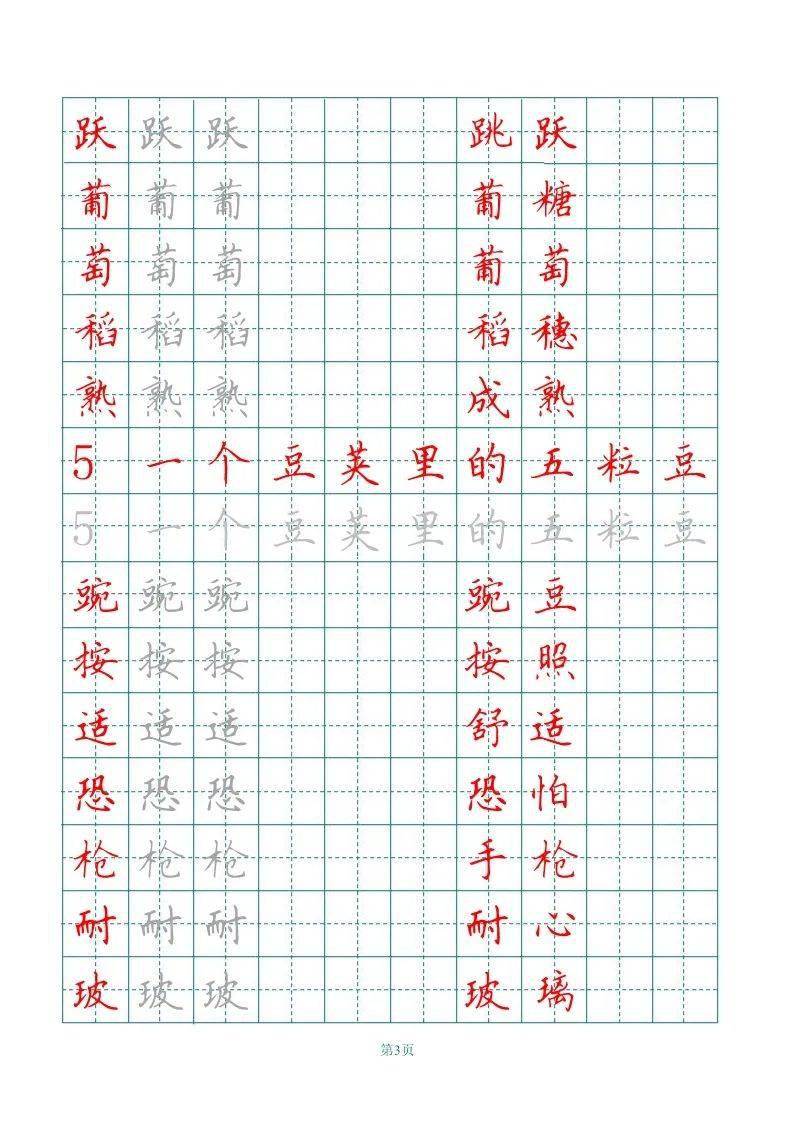 跃 跃 跃 跳 跃
葡 葡 葡 葡 糖
萄 萄 萄 葡 萄
稻 稻 稻 稻 穗
熟 熟 熟 成 熟
5 一 个 豆 荚 里 的 五 粒 豆
5 一 个 豆 荚 里 的 五 粒 豆
豌 豌 豌 豌 豆
按 按 按 按 照
适 适 适 舒 适
恐 恐 恐 恐 怕
枪 枪 枪 手 枪
耐 耐 耐 耐 心
玻 玻 玻 玻 璃
第3页